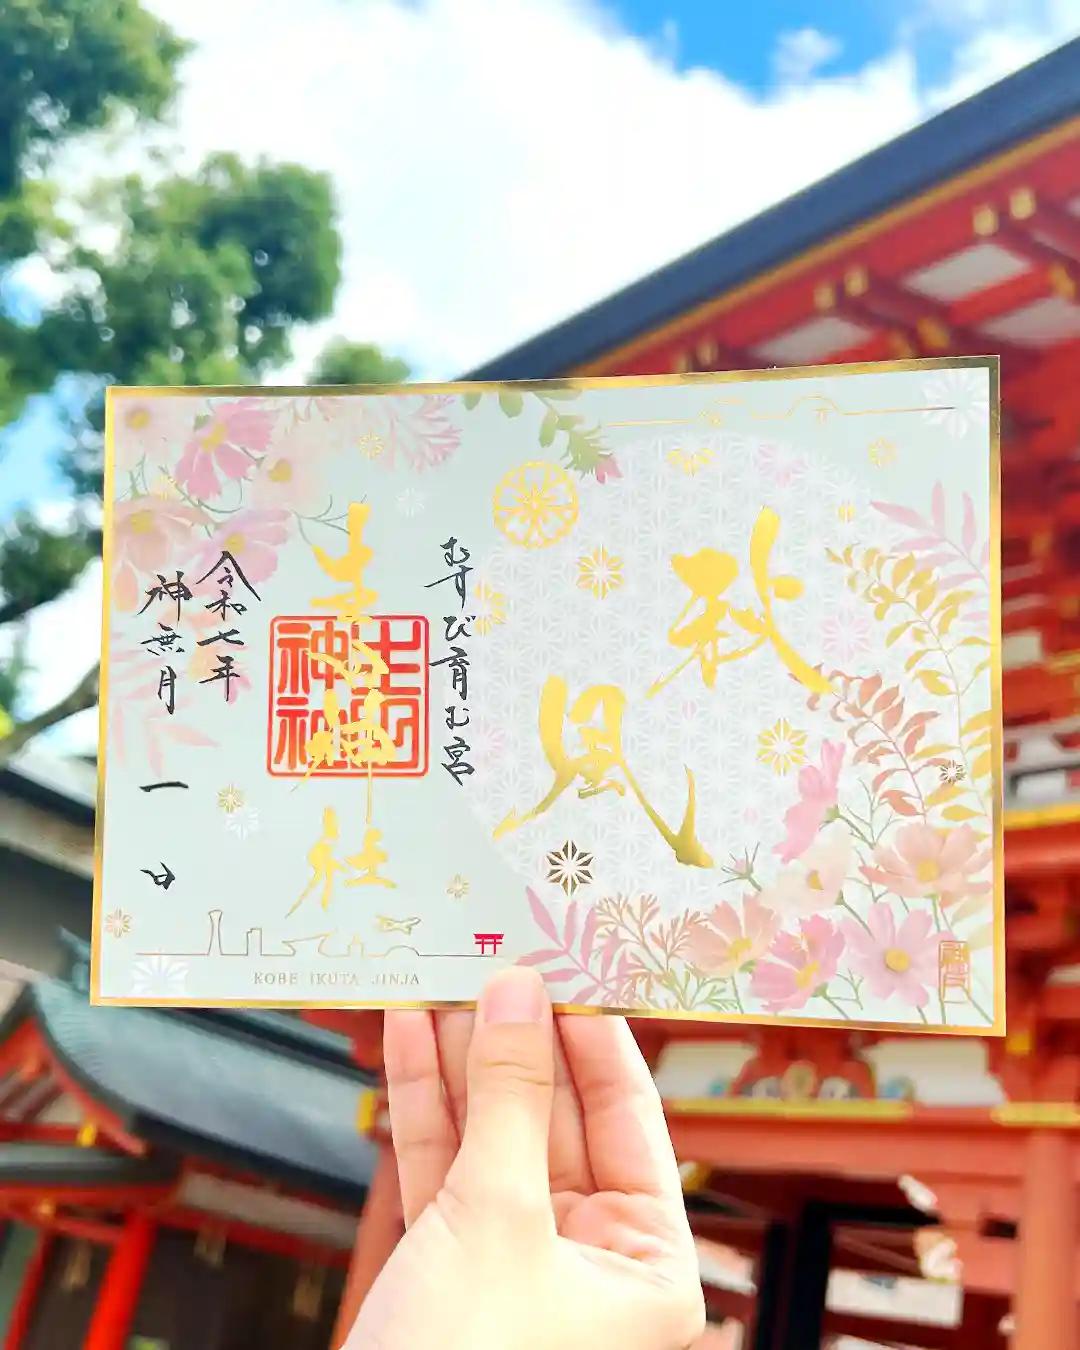 秋風
むすび育む宮
生田神社
生田神社
令和七年
神無月
一日
KOBE IKUTA JINJA